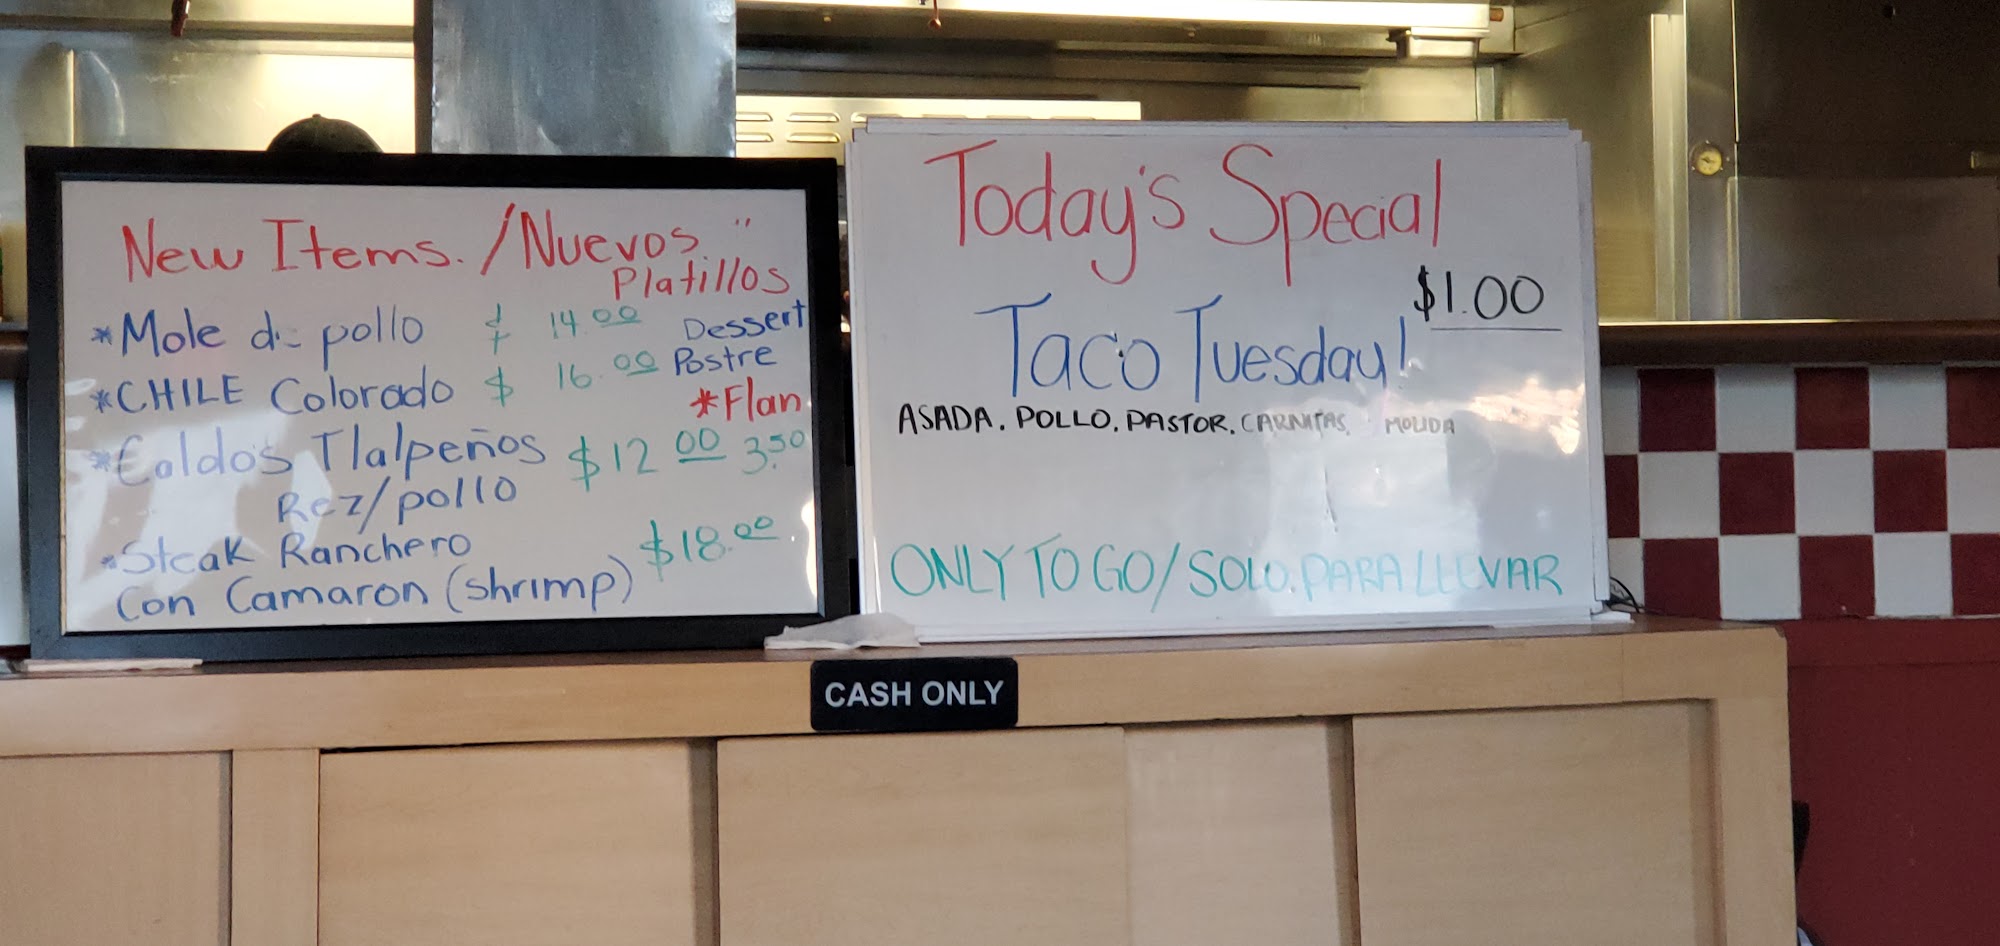 New Items. /Nuevos "
Platillos
*Mole de pollo $ 14.00
*CHILE Colorado $ 16.00
*Caldos Tlalpeños $12 00
Rez/pollo
*Steak Ranchero
Con Camaron (shrimp) $18.00
Dessert
Postre
*Flan
3.50
Today's Special
Taco Tuesday! $1.00
ASADA. POLLO. PASTOR. CARNITAS. MOLIDA
ONLY TO GO/SOLO.PARA LLEVAR
CASH ONLY